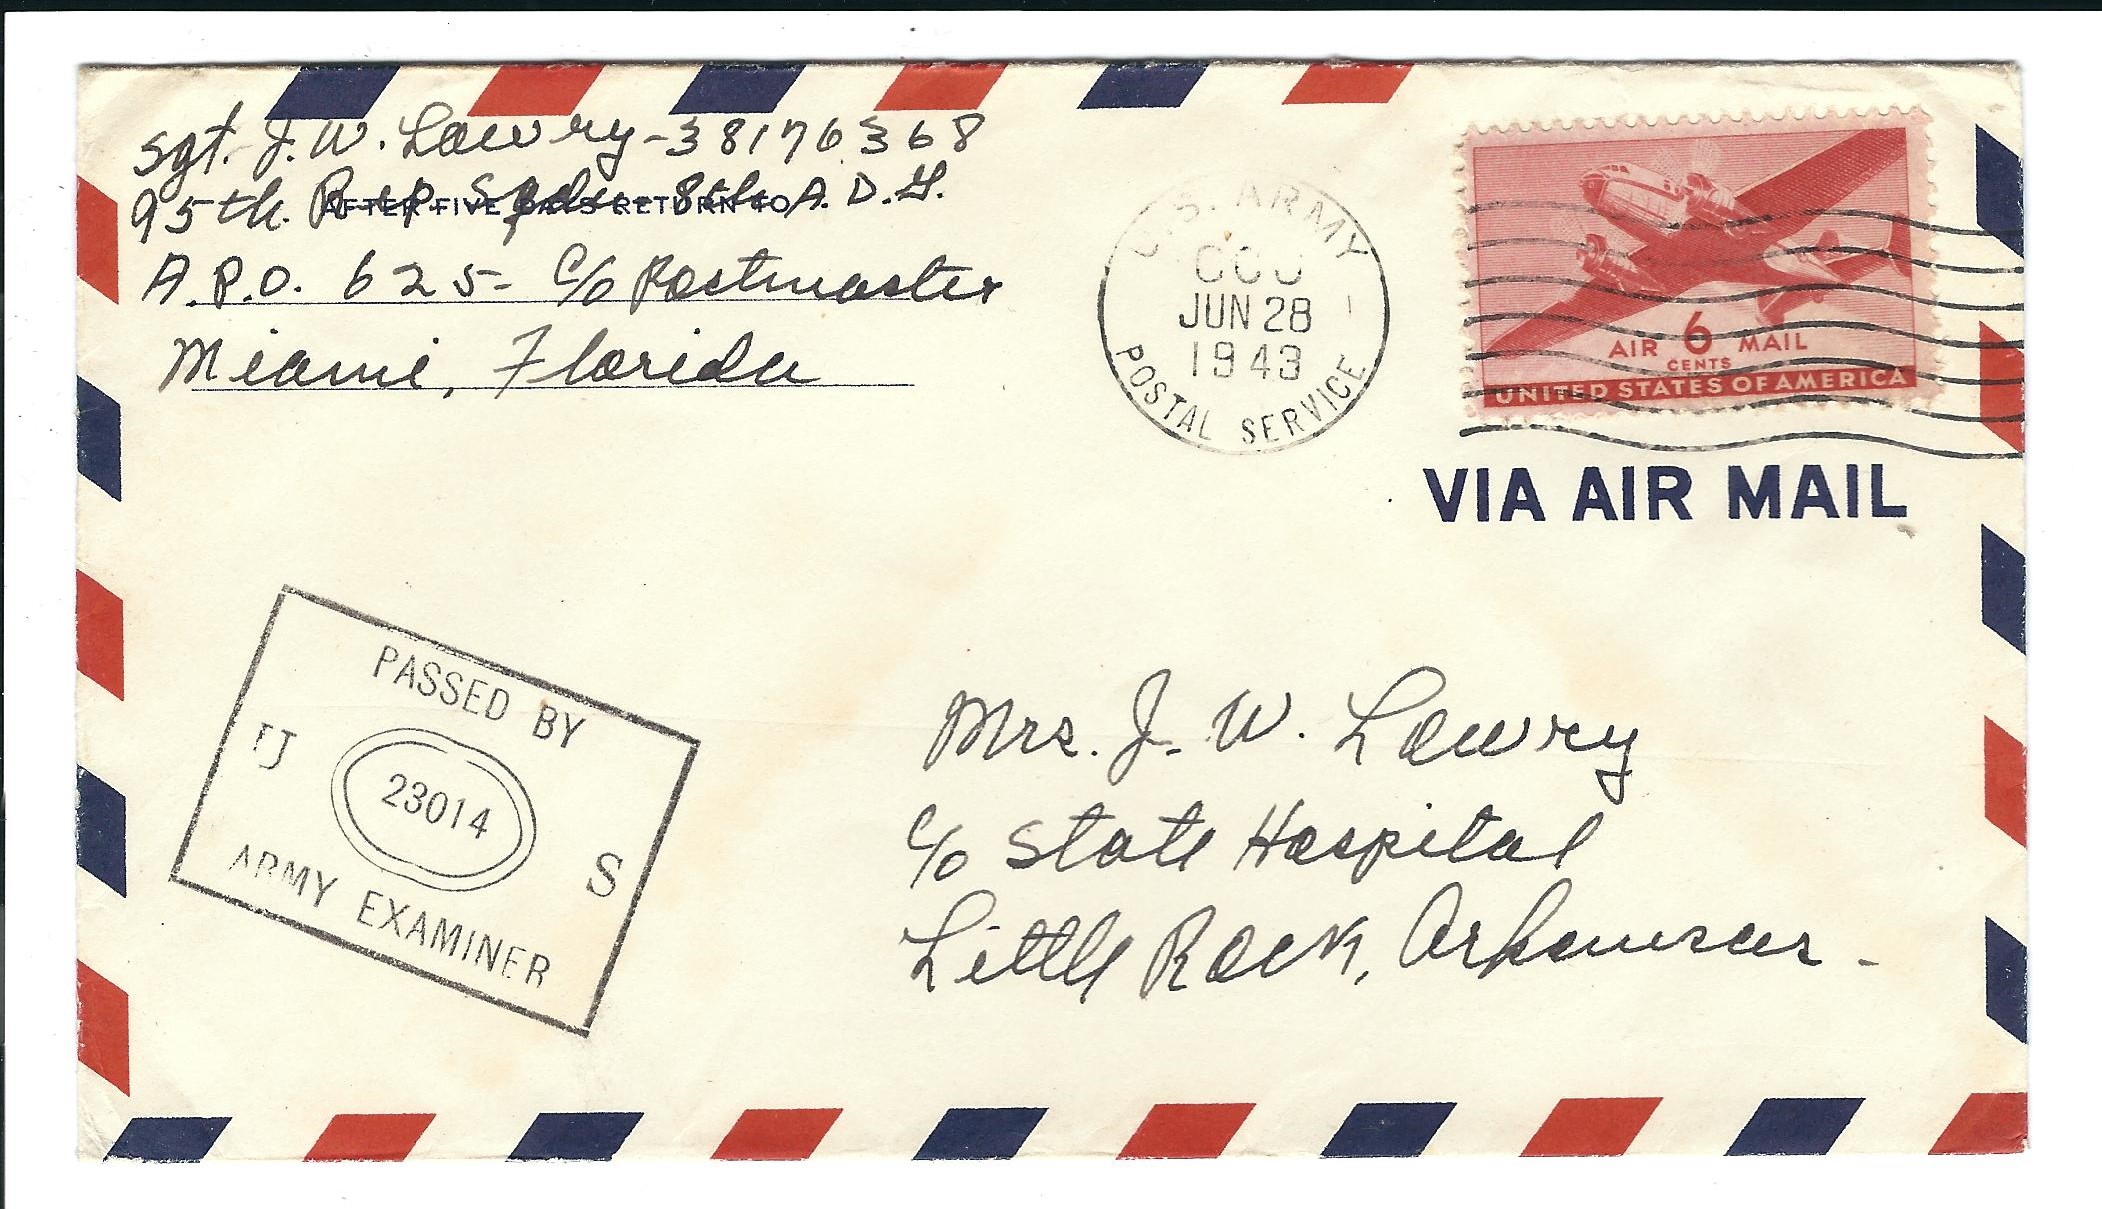 Sgt. J. W. Lowry - 38176368
AFTER FIVE DAYS RETURN TO
95th. Rep. Sqdn. 8th A. D. G.
A.P.O. 625 - c/o Postmaster
Miami, Florida
U.S. ARMY
JUN 28
1943
POSTAL SERVICE
AIR 6 MAIL
CENTS
UNITED STATES OF AMERICA
VIA AIR MAIL
PASSED BY
U 23014 S
ARMY EXAMINER
Mrs. J. W. Lowry
c/o State Hospital
Little Rock, Arkansas -